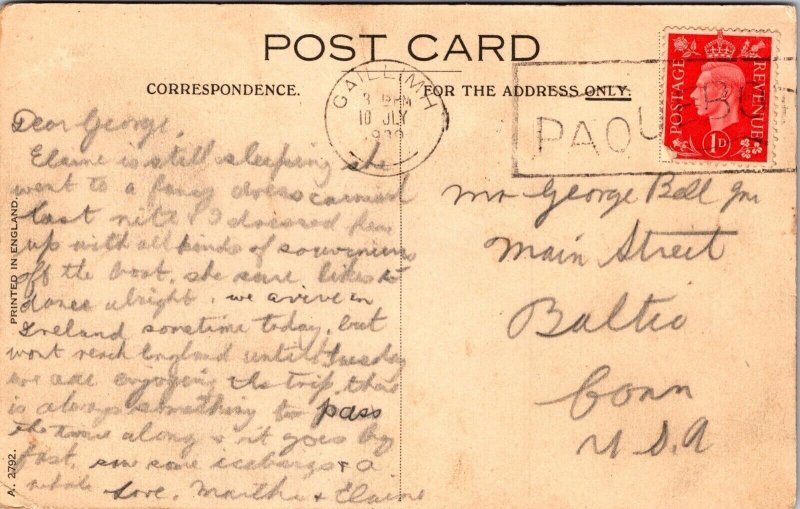 POST CARD
CORRESPONDENCE.
FOR THE ADDRESS ONLY.
GAILLIMH
3 PM
10 JLY
1939
PAQUEBOT
POSTAGE
REVENUE
1D
Dear George,
Elaine is still sleeping she
went to a fancy dress carnival
last nite. I dressed her
up with all kinds of souvenirs
off the boat. she sure likes to
dance alright. we arive in
Ireland sometime today, but
wont reach England until Tuesday
we are enjoying the trip, there
is always something to pass
the time along & it goes by
fast. saw some icebargs & a
whale Love. Martha & Elaine
Mr George Bell Jr
Main Street
Baltic
Conn
U S A
PRINTED IN ENGLAND.
A. 2792.